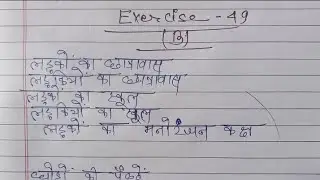 Exercise - 49
(B)
लड़कों का छात्रावास
लड़कियों का छात्रावास
लड़कों का स्कूल
लड़कियों का स्कूल
लड़कों का मनोरंजन कक्ष
की